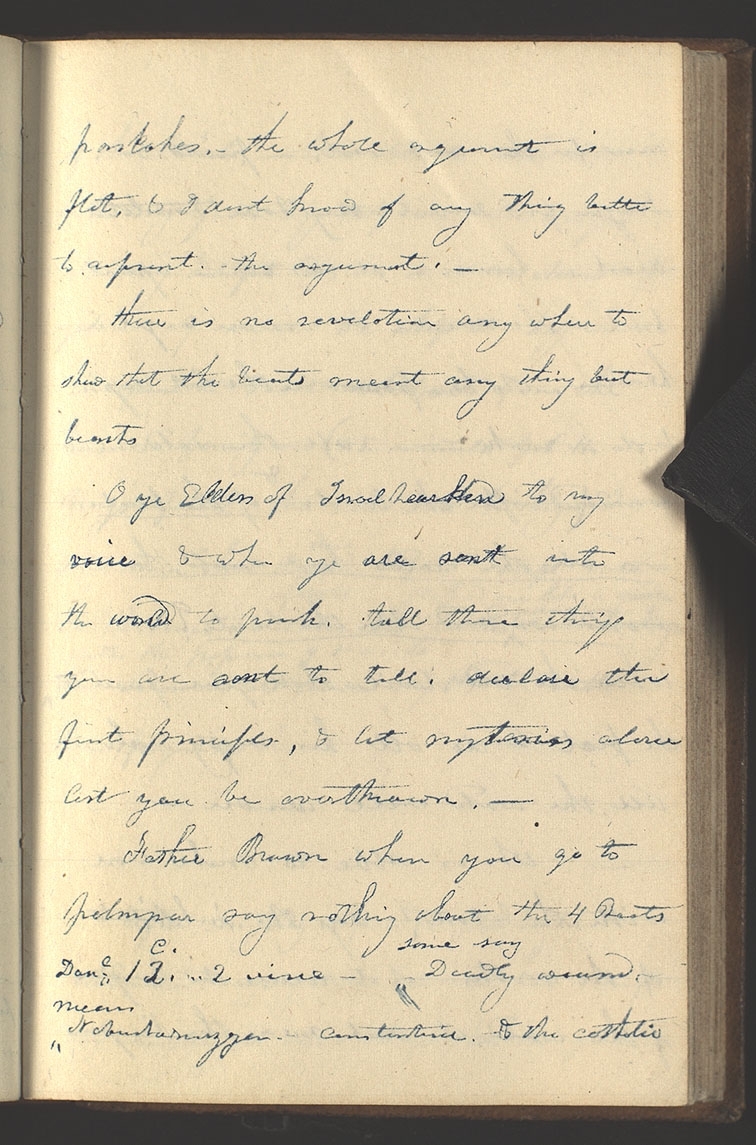 partakes.– the whole argument is
flat. & I dont know of any thing better
to represent. the argument. —
there is no revelation any where to
show that the beasts meant any thing but
beasts
O ye Elders of Israel hearken to my
voice & when ye are sent into
the world to preach. tell those things
you are sent to tell. declare the
first principles, & let mysteries alone
lest you be overthrown. —
Father Brown when you go to
say nothing about the 4 Beasts
some say
Dan. 12. c. 2 verse – Deadly wound.
means
Nebuchadnezzar. constantine. & the catholic